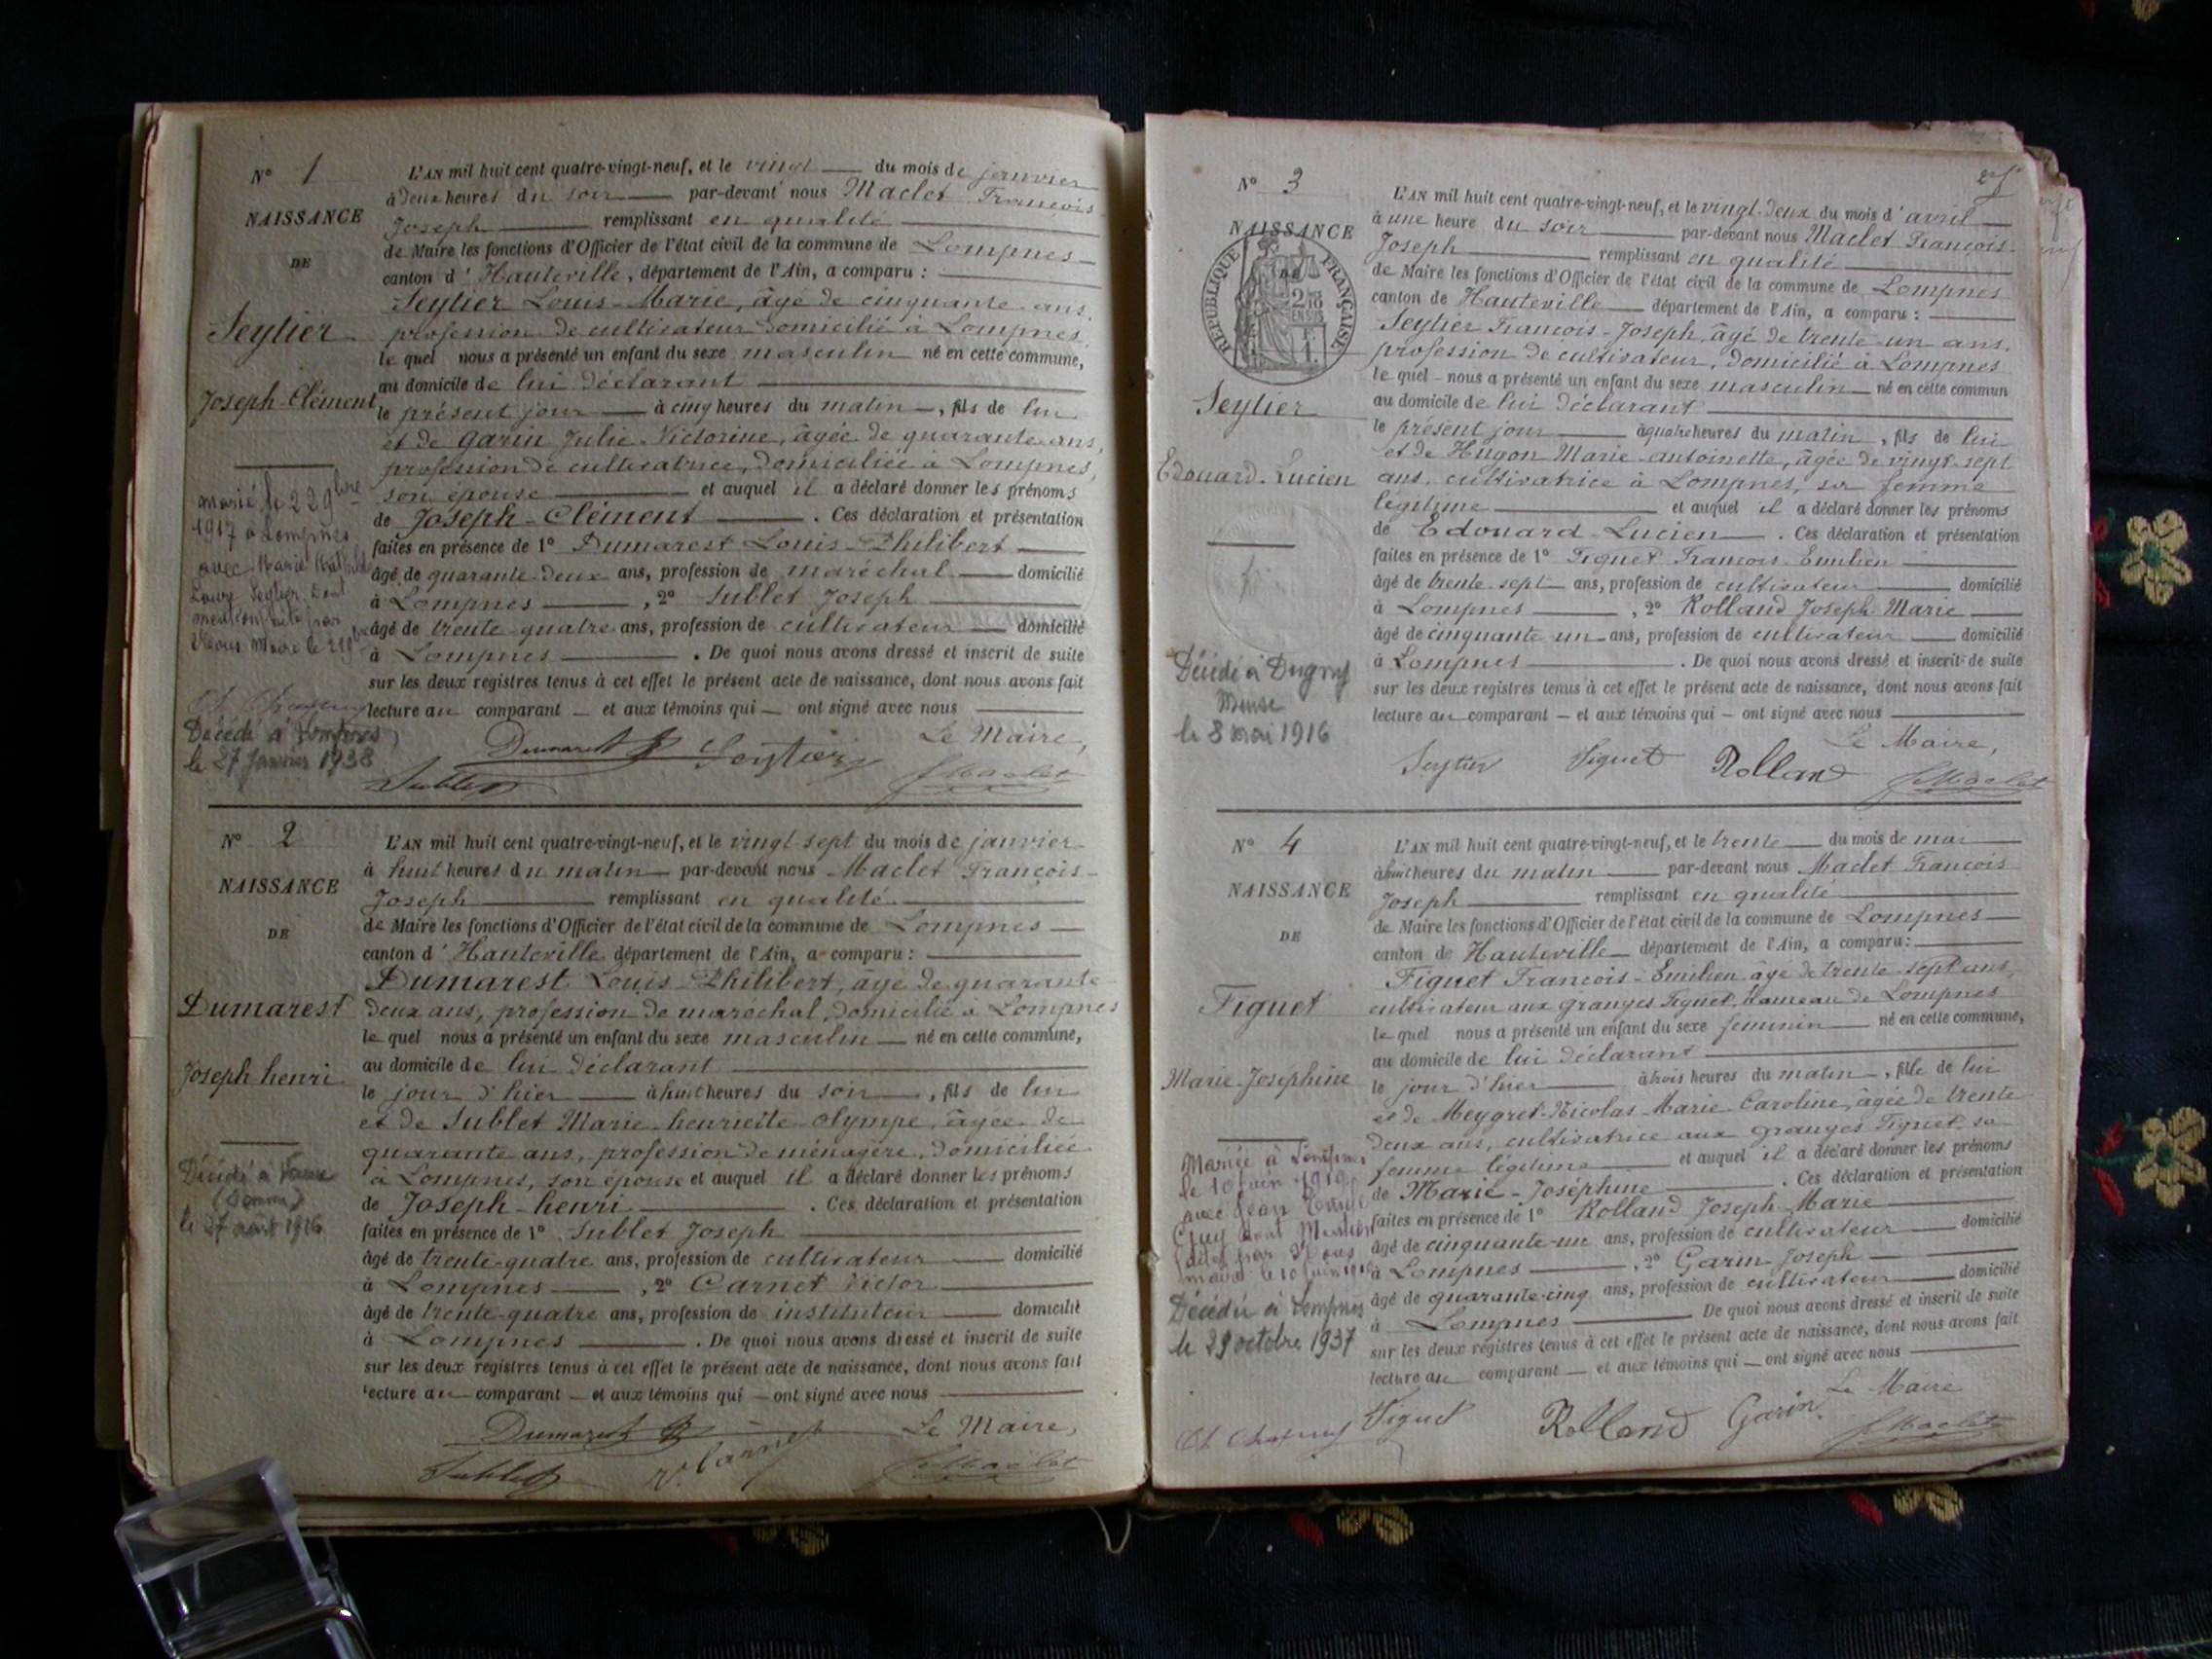 N° 1
NAISSANCE
DE
Seytier
Joseph-Clément
marié le 22 9bre
1917 à Lompnes
avec Marie
Laure Seytier Dont
mention faite par
Nous Maire le 22 9bre
Décédé à Lompnes
le 27 Janvier 1938
L'AN mil huit cent quatre-vingt-neuf, et le vingt du mois de janvier
à deux heures du soir par-devant nous Maclet François
Joseph remplissant en qualité
de Maire les fonctions d'Officier de l'état civil de la commune de Lompnes
canton d'Hauteville, département de l'Ain, a comparu :
Seytier Louis-Marie, âgé de cinquante ans,
profession de cultivateur domicilié à Lompnes,
le quel nous a présenté un enfant du sexe masculin né en cette commune,
au domicile de lui déclarant
le présent jour à cinq heures du matin, fils de lui
et de Garin Julie-Victorine, âgée de quarante ans,
profession de cultivatrice, domiciliée à Lompnes,
son épouse et auquel il a déclaré donner les prénoms
de Joseph-Clément. Ces déclaration et présentation
faites en présence de 1° Dumarest Louis-Philibert
âgé de quarante-deux ans, profession de maréchal domicilié
à Lompnes, 2° Sublet Joseph
âgé de trente-quatre ans, profession de cultivateur domicilié
à Lompnes. De quoi nous avons dressé et inscrit de suite
sur les deux registres tenus à cet effet le présent acte de naissance, dont nous avons fait
lecture au comparant et aux témoins qui ont signé avec nous
Le Maire,
Dumarest Seytier
Sublet Maclet
N° 2
NAISSANCE
DE
Dumarest
Joseph henri
Décédé à
(Somme)
le 27 août 1916
L'AN mil huit cent quatre-vingt-neuf, et le vingt-sept du mois de janvier
à huit heures du matin par-devant nous Maclet François-
Joseph remplissant en qualité
de Maire les fonctions d'Officier de l'état civil de la commune de Lompnes
canton d'Hauteville département de l'Ain, a comparu :
Dumarest Louis-Philibert, âgé de quarante-
deux ans, profession de maréchal, domicilié à Lompnes
le quel nous a présenté un enfant du sexe masculin né en cette commune,
au domicile de lui déclarant
le jour d'hier à huit heures du soir, fils de lui
et de Sublet Marie-henriette-Olympe, âgée de
quarante ans, profession de ménagère, domiciliée
à Lompnes, son épouse et auquel il a déclaré donner les prénoms
de Joseph-henri. Ces déclaration et présentation
faites en présence de 1° Sublet Joseph
âgé de trente-quatre ans, profession de cultivateur domicilié
à Lompnes, 2° Carnet Victor
âgé de trente-quatre ans, profession de instituteur domicilié
à Lompnes. De quoi nous avons dressé et inscrit de suite
sur les deux registres tenus à cet effet le présent acte de naissance, dont nous avons fait
lecture au comparant et aux témoins qui ont signé avec nous
Dumarest Le Maire,
Sublet V. Carnet Maclet
N° 3
NAISSANCE
DE
RÉPUBLIQUE FRANÇAISE
Seytier
Edouard-Lucien
Décédé à Dugny
Meuse
le 8 mai 1916
L'AN mil huit cent quatre-vingt-neuf, et le vingt-deux du mois d'avril
à une heure du soir par-devant nous Maclet François-
Joseph remplissant en qualité
de Maire les fonctions d'Officier de l'état civil de la commune de Lompnes
canton de Hauteville département de l'Ain, a comparu :
Seytier François-Joseph, âgé de trente-un ans,
profession de cultivateur, domicilié à Lompnes
le quel nous a présenté un enfant du sexe masculin né en cette commun
au domicile de lui déclarant
le présent jour à quatre heures du matin, fils de lui
et de Hugon Marie-Antoinette, âgée de vingt-sept
ans, cultivatrice à Lompnes, sa femme
légitime et auquel il a déclaré donner les prénoms
de Edouard-Lucien. Ces déclaration et présentation
faites en présence de 1° Figuet François-Emilien
âgé de trente-sept ans, profession de cultivateur domicilié
à Lompnes, 2° Rolland Joseph-Marie
âgé de cinquante-un ans, profession de cultivateur domicilié
à Lompnes. De quoi nous avons dressé et inscrit de suite
sur les deux registres tenus à cet effet le présent acte de naissance, dont nous avons fait
lecture au comparant et aux témoins qui ont signé avec nous
Le Maire,
Seytier Figuet Rolland Maclet
N° 4
NAISSANCE
DE
Figuet
Marie-Joséphine
Mariée à Lompnes
le 10 Juin 1910
avec Jean
Guy dont Mention
faite par Nous
maire le 10 Juin 1910
Décédée à Lompnes
le 29 octobre 1937
L'AN mil huit cent quatre-vingt-neuf, et le trente du mois de mai
à huit heures du matin par-devant nous Maclet François
Joseph remplissant en qualité
de Maire les fonctions d'Officier de l'état civil de la commune de Lompnes
canton de Hauteville département de l'Ain, a comparu :
Figuet François-Emilien âgé de trente-sept ans,
cultivateur aux granges Figuet, hameau de Lompnes
le quel nous a présenté un enfant du sexe féminin né en cette commune,
au domicile de lui déclarant
le jour d'hier à trois heures du matin, fille de lui
et de Meygret-Nicolas Marie-Caroline, âgée de trente
deux ans, cultivatrice aux granges Figuet, sa
femme légitime et auquel il a déclaré donner les prénoms
de Marie-Joséphine. Ces déclaration et présentation
faites en présence de 1° Rolland Joseph-Marie
âgé de cinquante-un ans, profession de cultivateur domicilié
à Lompnes, 2° Garin Joseph
âgé de quarante-cinq ans, profession de cultivateur domicilié
à Lompnes De quoi nous avons dressé et inscrit de suite
sur les deux registres tenus à cet effet le présent acte de naissance, dont nous avons fait
lecture au comparant et aux témoins qui ont signé avec nous
Le Maire
Figuet Rolland Garin Maclet